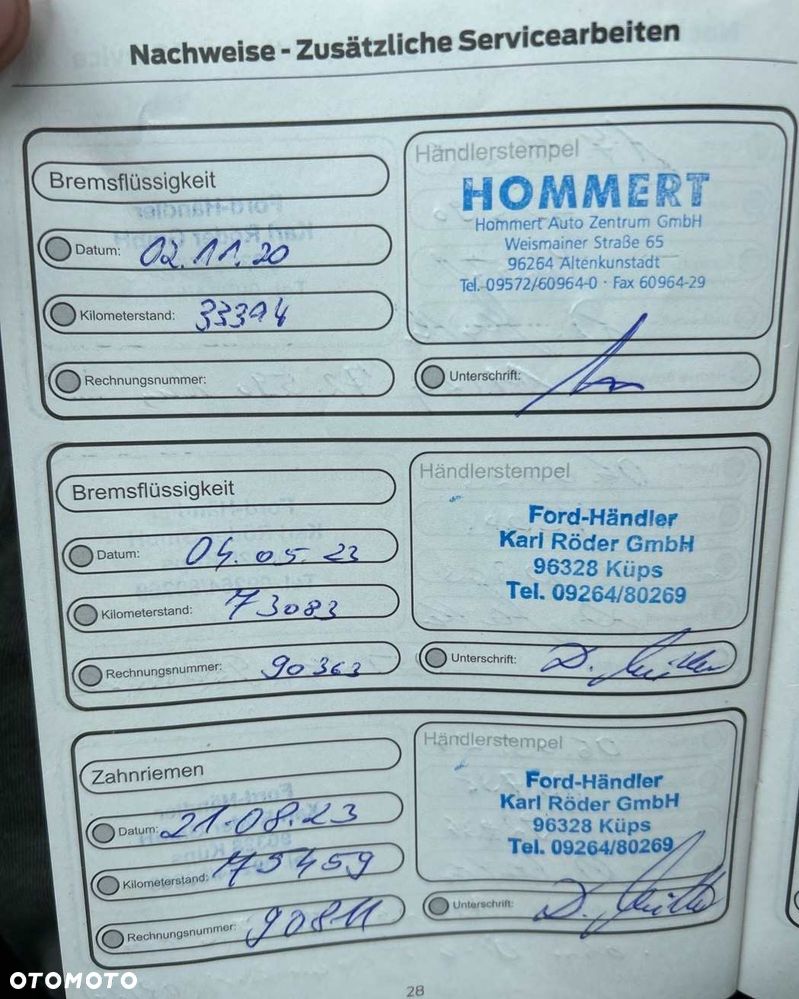 Nachweise - Zusätzliche Servicearbeiten
Bremsflüssigkeit
Datum: 02.11.20
Kilometerstand: 33394
Rechnungsnummer:
Händlerstempel
HOMMERT
Hommert Auto Zentrum GmbH
Weismainer Straße 65
96264 Altenkunstadt
Tel. 09572/60964-0 · Fax 60964-29
Unterschrift:
Bremsflüssigkeit
Datum: 04.05.23
Kilometerstand: 73083
Rechnungsnummer: 90363
Händlerstempel
Ford-Händler
Karl Röder GmbH
96328 Küps
Tel. 09264/80269
Unterschrift: D.
Zahnriemen
Datum: 21.08.23
Kilometerstand: 75459
Rechnungsnummer: 90811
Händlerstempel
Ford-Händler
Karl Röder GmbH
96328 Küps
Tel. 09264/80269
Unterschrift: D.
28
OTOMOTO